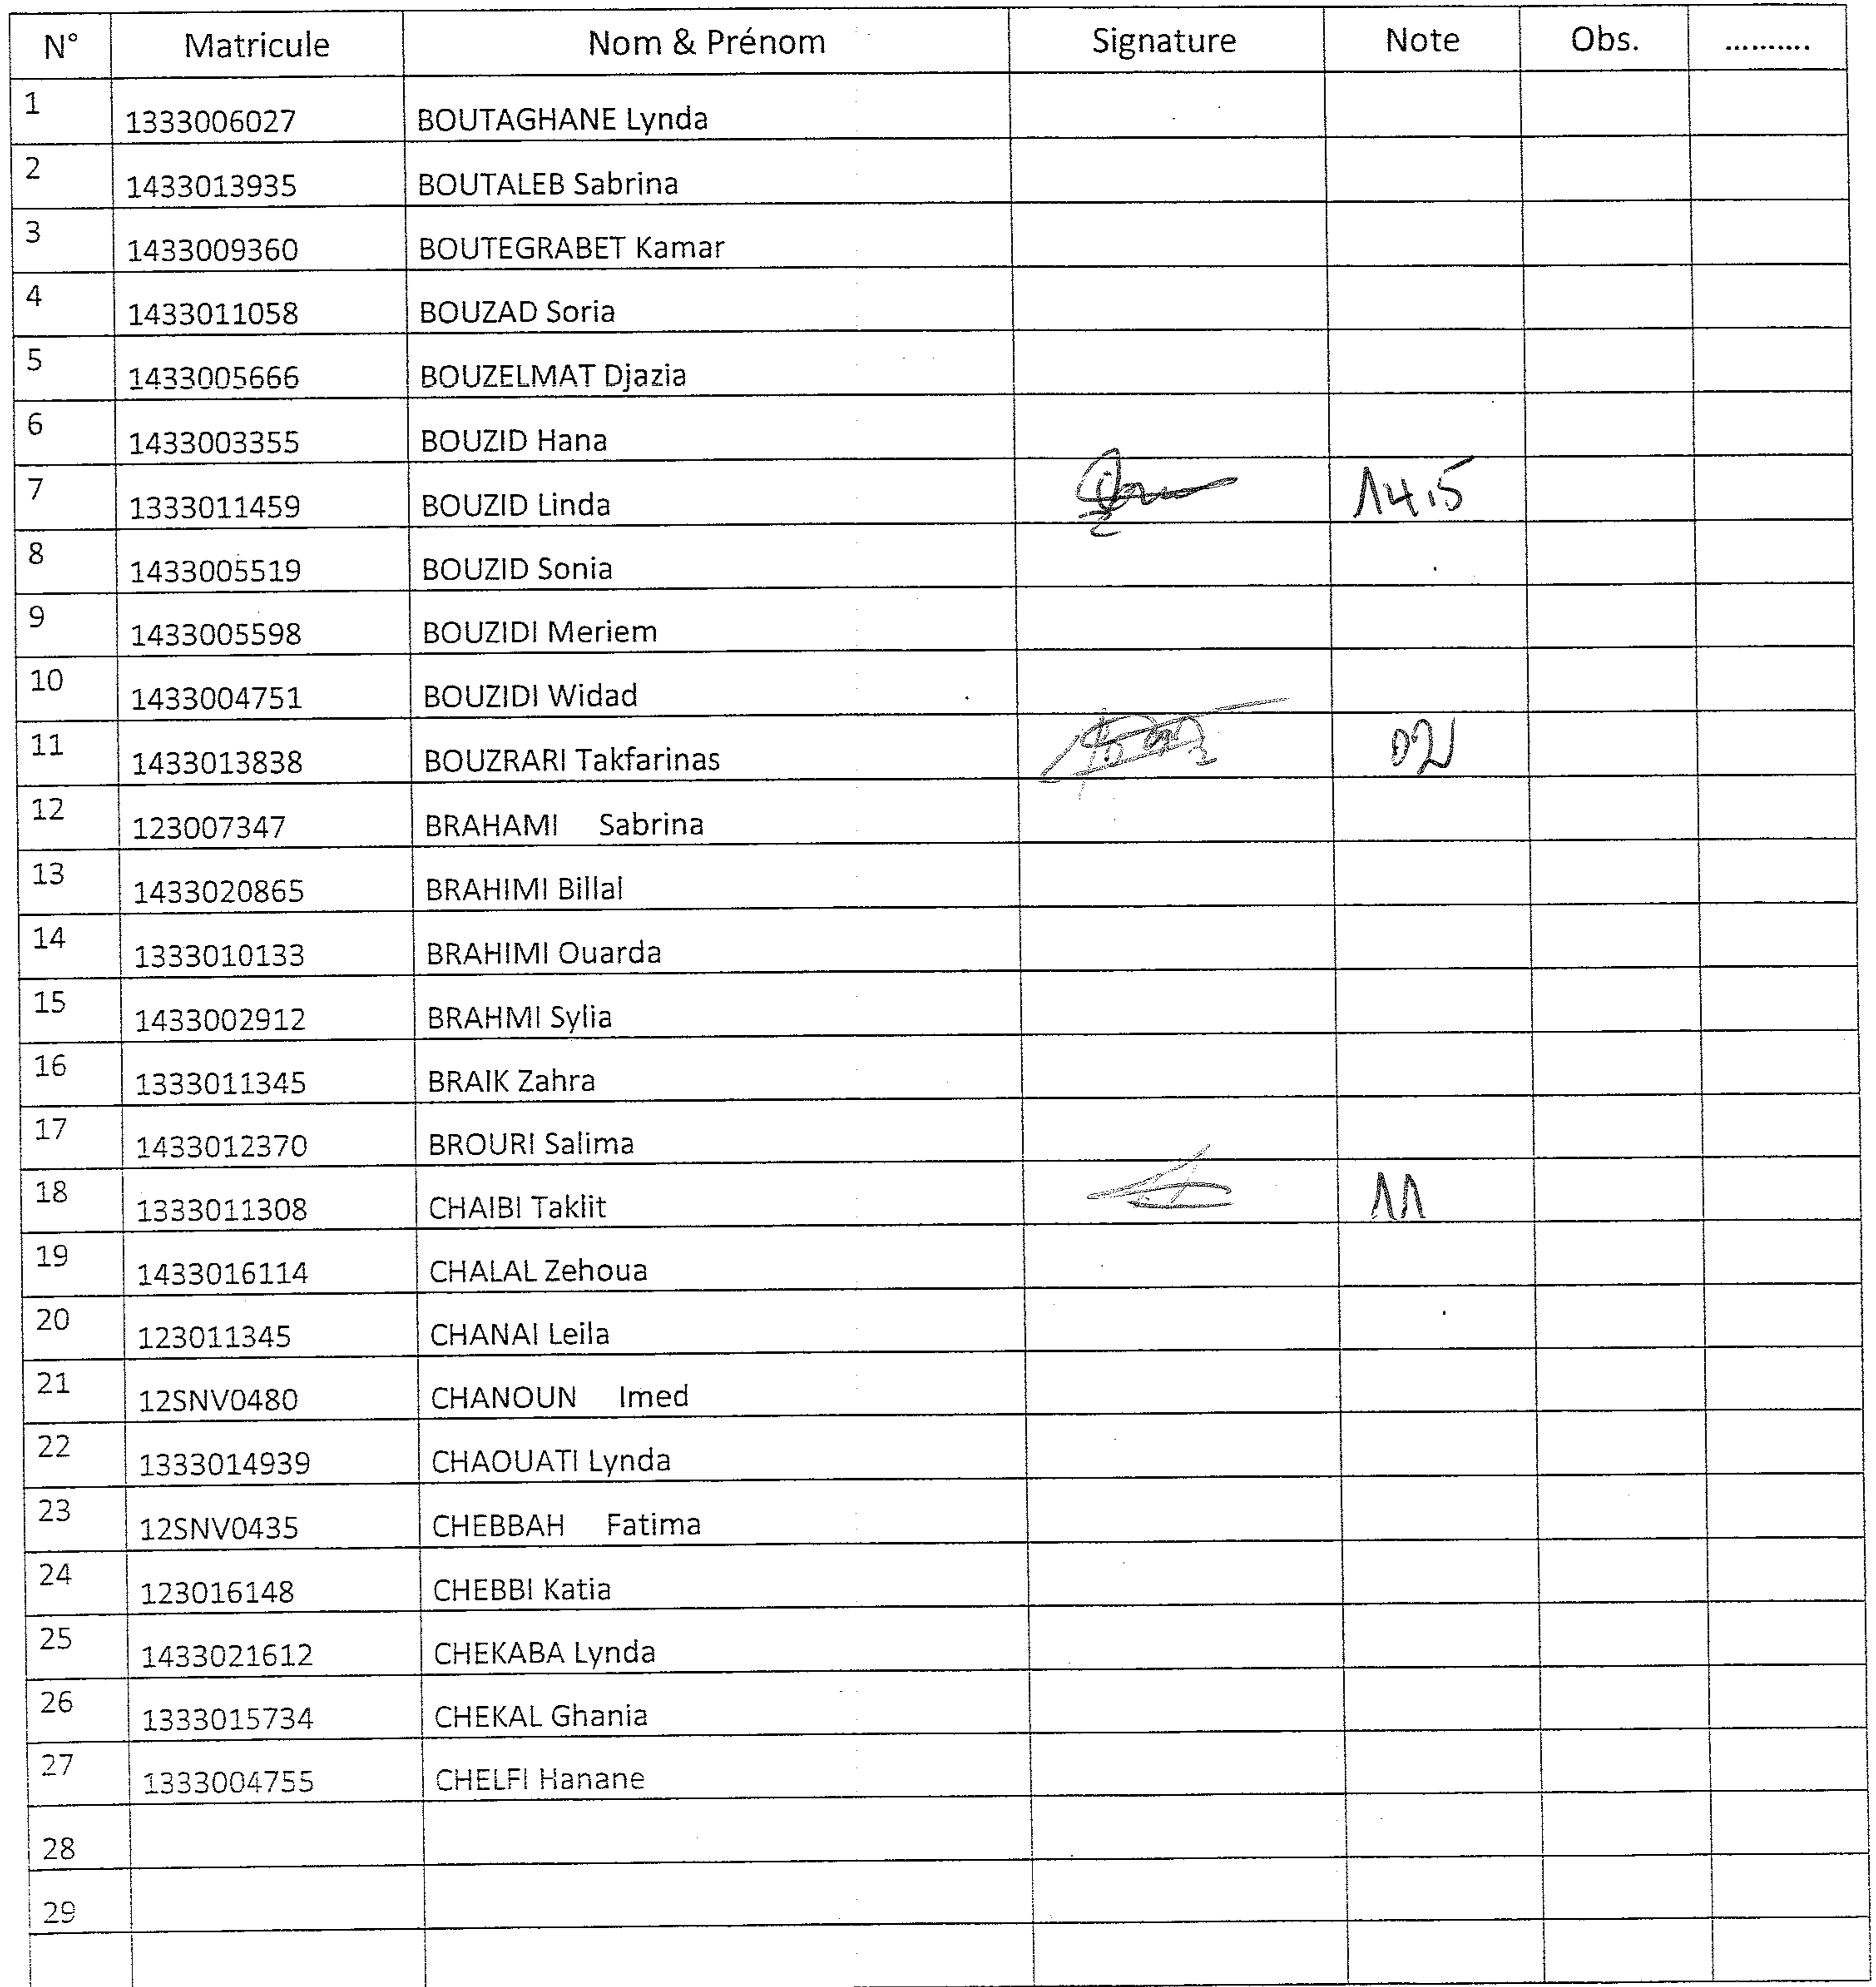 N° Matricule Nom & Prénom Signature Note Obs. ..........
1 1333006027 BOUTAGHANE Lynda
2 1433013935 BOUTALEB Sabrina
3 1433009360 BOUTEGRABET Kamar
4 1433011058 BOUZAD Soria
5 1433005666 BOUZELMAT Djazia
6 1433003355 BOUZID Hana
7 1333011459 BOUZID Linda 14,5
8 1433005519 BOUZID Sonia
9 1433005598 BOUZIDI Meriem
10 1433004751 BOUZIDI Widad
11 1433013838 BOUZRARI Takfarinas 02
12 123007347 BRAHAMI Sabrina
13 1433020865 BRAHIMI Billal
14 1333010133 BRAHIMI Ouarda
15 1433002912 BRAHMI Sylia
16 1333011345 BRAIK Zahra
17 1433012370 BROURI Salima
18 1333011308 CHAIBI Taklit 11
19 1433016114 CHALAL Zehoua
20 123011345 CHANAI Leila
21 12SNV0480 CHANOUN Imed
22 1333014939 CHAOUATI Lynda
23 12SNV0435 CHEBBAH Fatima
24 123016148 CHEBBI Katia
25 1433021612 CHEKABA Lynda
26 1333015734 CHEKAL Ghania
27 1333004755 CHELFI Hanane
28
29